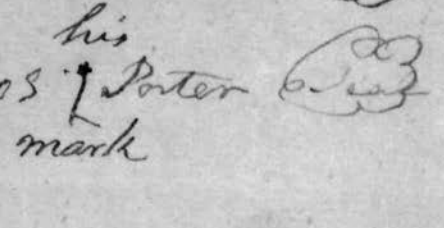 his
os † Porter Seal
mark